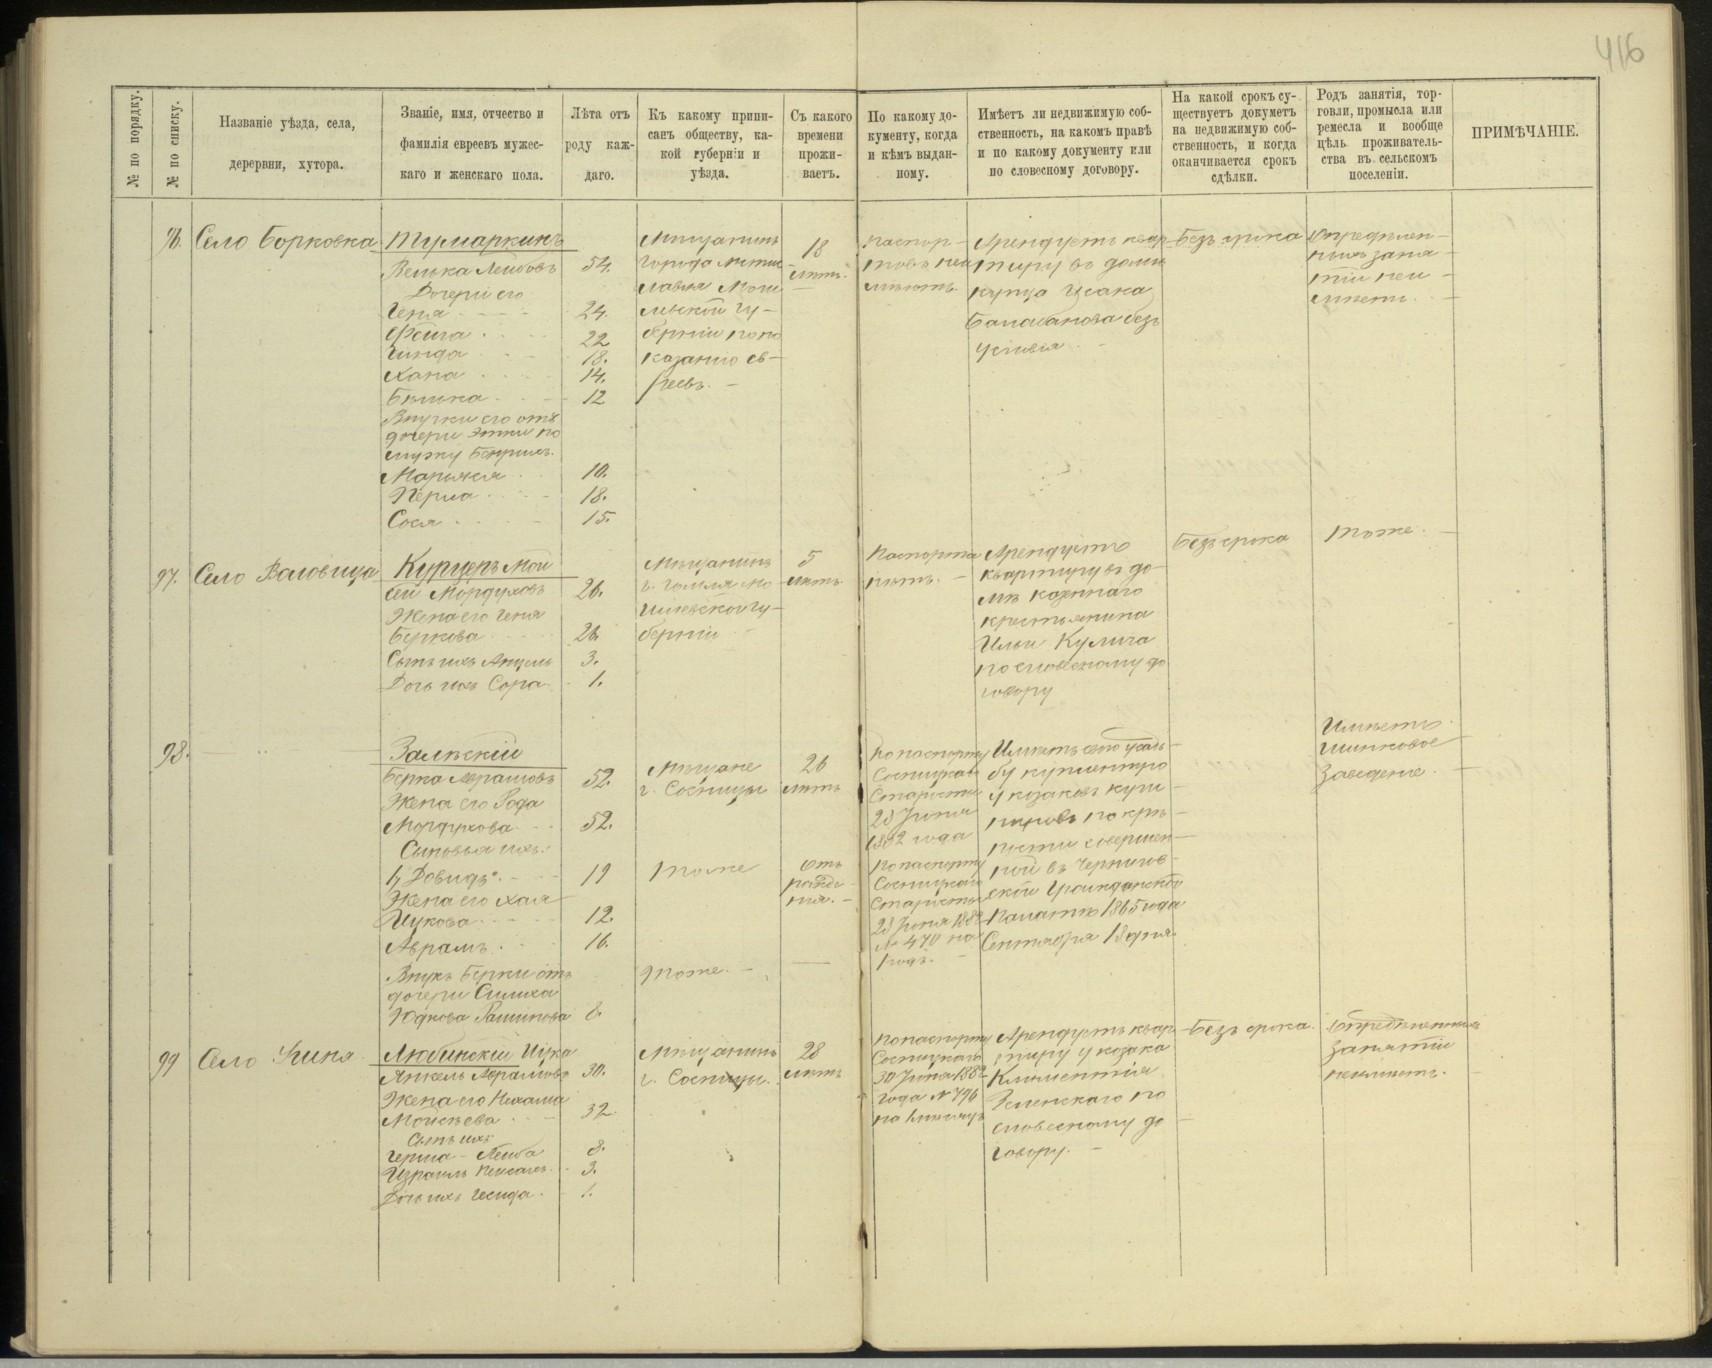 416
№ по порядку.
№ по списку.
Названіе уѣзда, села,
дерервни, хутора.
Званіе, имя, отчество и
фамилія евреевъ мужес-
каго и женскаго пола.
Лѣта отъ
роду каж-
даго.
Къ какому припи-
санъ обществу, ка-
кой губерніи и
уѣзда.
Съ какого
времени
прожи-
ваетъ.
По какому до-
кументу, когда
и кѣмъ выдан-
ному.
Имѣетъ ли недвижимую соб-
ственность, на какомъ правѣ
и по какому документу или
по словесному договору.
На какой срокъ су-
ществуетъ докуметъ
на недвижимую соб-
ственность, и когда
оканчивается срокъ
сдѣлки.
Родъ занятія, тор-
говли, промысла или
ремесла и вообще
цѣль проживатель-
ства въ сельскомъ
поселеніи.
ПРИМѢЧАНІЕ.
96.
Село Борковка
Тумаркинъ
Велька Лейбовъ 54.
Дочери его
Геня 24.
Фейга 22
Гинда 18.
Хана 14.
Бѣлка 12
Внучки его отъ
дочери Этки по
мужу
Марьяся 10.
Перла 18.
Сося 15.
Мѣщанинъ
города Мстис-
лавля Моги-
левской гу-
берніи по по
казанію ев-
реевъ.
18
лѣтъ.
Паспор-
товъ неи
мѣютъ.
Арендуетъ квар
тиру въ доми
купца Исака
Балабанова безъ
условія
Безъ срока
Опредѣлен-
ныхъ заня-
тій неи-
мѣетъ.
97.
Село Воловица
Курцеръ Мой
сей Мордуховъ 26.
Жена его Геня
Беркова 26.
Сынъ ихъ Анцель 3.
Дочь ихъ Сора 1.
Мѣщанинъ
г. Гомля Мо-
гилевской гу-
берніи
5
лѣтъ
Паспорта
нѣтъ.
Арендуетъ
квартиру въ до-
мѣ казеннаго
крестьянина
Ильи Кулича
по словесному до
говору
Безъ срока
Тоже.
98.
Залѣскій
Берка Абрамовъ 52.
Жена его Рода
Мордухова 52.
Сыновья ихъ:
1, Довидъ 19
Жена его Хая
Ицкова 12.
Абрамъ 16.
Внукъ Берки отъ
дочери Симха
Юдкова Рашинова 8.
Мѣщане
г. Сосницы
26
лѣтъ
Тоже
Отъ
рожде-
нія.
Тоже.
По паспорту
Сосницкаго
Старосты
23 Іюня
1882 года
По паспорту
Сосницкаго
Старосты
23 Іюня 1882
№ 470 на
годъ.
Имѣетъ свою усадь-
бу купленную
у козаковъ
по крѣ-
пости совершен-
ной въ Чернигов-
ской Гражданской
Палатѣ 1865 года
Сентября 18 дня.
Имѣетъ
шинковое
заведеніе.
99
Село
Любинскій Ицка
Янкель Абрамовъ 30.
Жена его Нехама
Моисѣева 32.
Сынъ ихъ
Герша-Лейба 8.
Израиль 3.
Дочь ихъ Гесида 1.
Мѣщанинъ
г. Сосницы.
28
лѣтъ
По паспорту
Сосницкаго
30 Іюня 1882
года № 796
Арендуетъ квар
тиру у козака
Климентія
Зеленскаго по
словесному до
говору.
Безъ срока.
Опредѣленныхъ
занятій
неимѣетъ.